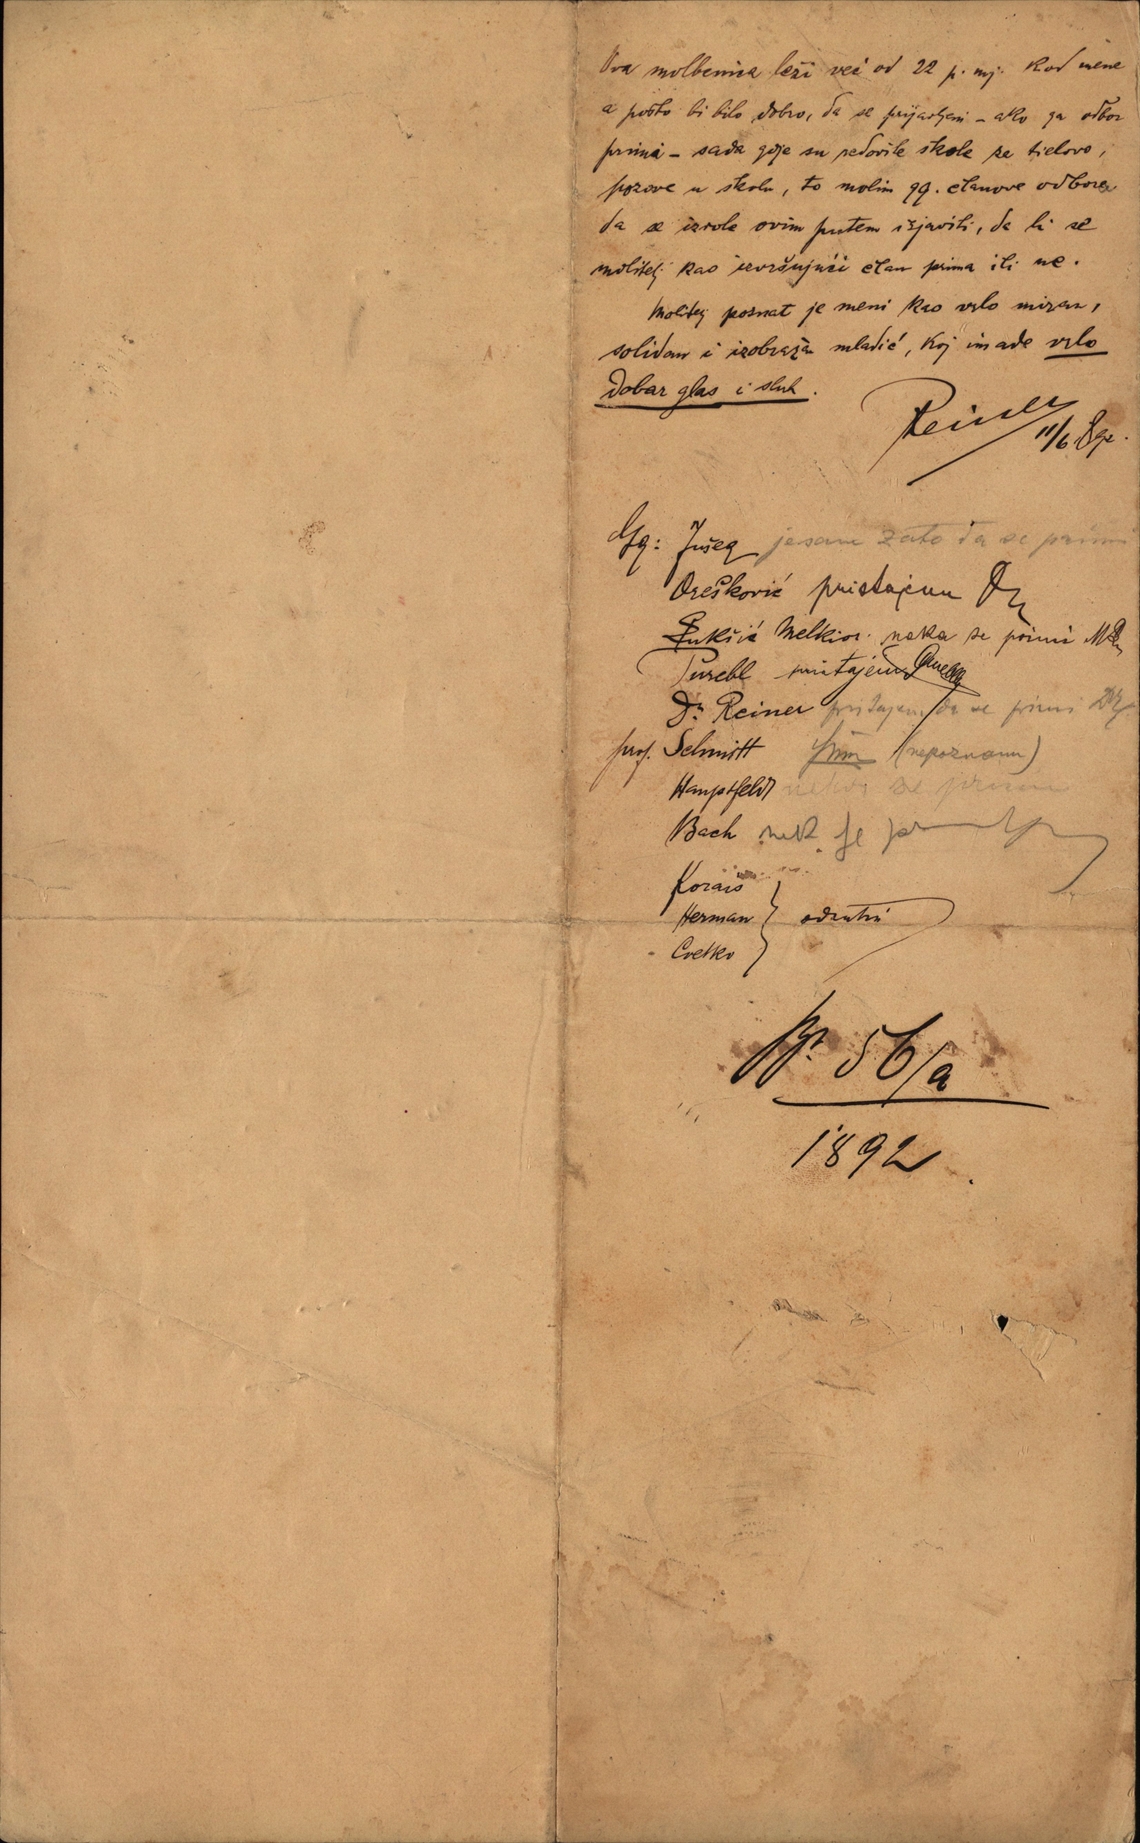 Ova molbenica leži već od 22 p. mj. kod mene
a pošto bi bilo dobro, da se prijavljeni – ako ga odbor
prima – sada gdje su redovite skole za tielovo,
pozove u skolu, to molim gg. članove odbora
da se izvole ovim putem izjaviti, da li se
molitelj kao izvršujući član prima ili ne.
Molitelj poznat je meni kao vrlo miran,
solidan i izobražen mladić, koj imade vrlo
dobar glas i sluh.
Reiner
11/6 892.
Gg: Jušeg jesam zato da se primi
Orešković pristajem
Lukšić Melkior. neka se primi
Purebl pristajem
Dr Reiner pristajem da se primi
prof. Schmitt (nepoznam)
Hauptfeld neka se primi
Bach nek se
Korais
Herman } odsutni
Cvetko
Br. 56/a
1892